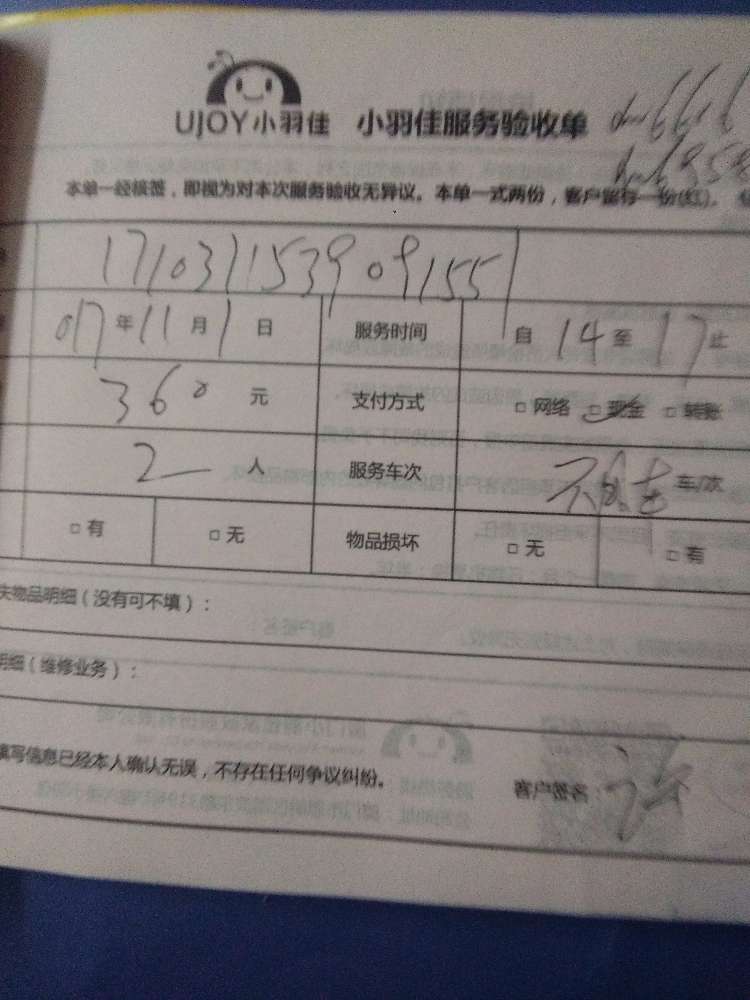 UJOY小羽佳 小羽佳服务验收单
本单一经核签，即视为对本次服务验收无异议。本单一式两份，客户留存一份(红)。
171031153909155
017年11月1日 服务时间 自14至17止
360元 支付方式 □ 网络 □ 现金 □ 转账
2人 服务车次 车/次
□ 有 □ 无 物品损坏 □ 无 □ 有
失物品明细（没有可不填）：
明细（维修业务）：
填写信息已经本人确认无误，不存在任何争议纠纷。 客户签名：